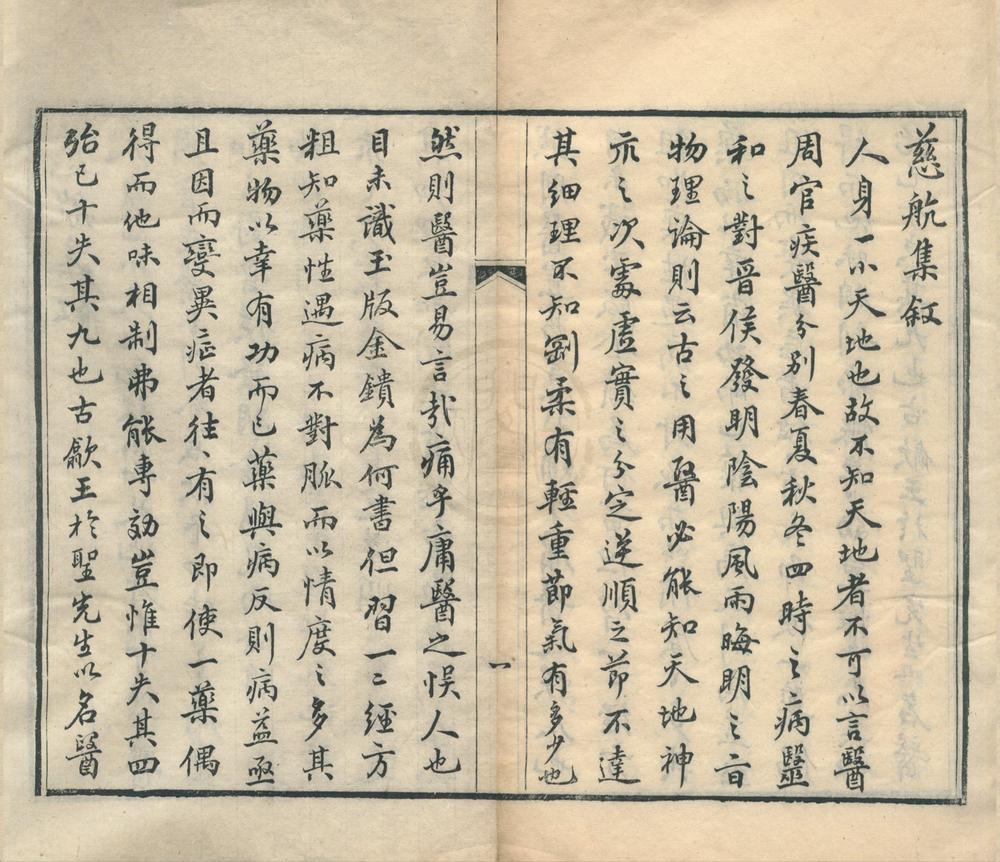 慈航集叙
人身一小天地也故不知天地者不可以言醫
周官疾醫分別春夏秋冬四時之病醫
和之對晋侯發明陰陽風雨晦明之旨
物理論則云古之用醫必能知天地神
示之次處虛實之分定逆順之節不達
其細理不知剛柔有輕重節氣有多少也
一
然則醫豈易言哉痛乎庸醫之悮人也
目未識玉版金鐀為何書但習一二經方
粗知藥性遇病不對脈而以情度之多其
藥物以幸有功而已藥與病反則病益亟
且因而變異症者往〻有之即使一藥偶
得而他味相制弗能專効豈惟十失其四
殆已十失其九也古歙王於聖先生以名醫